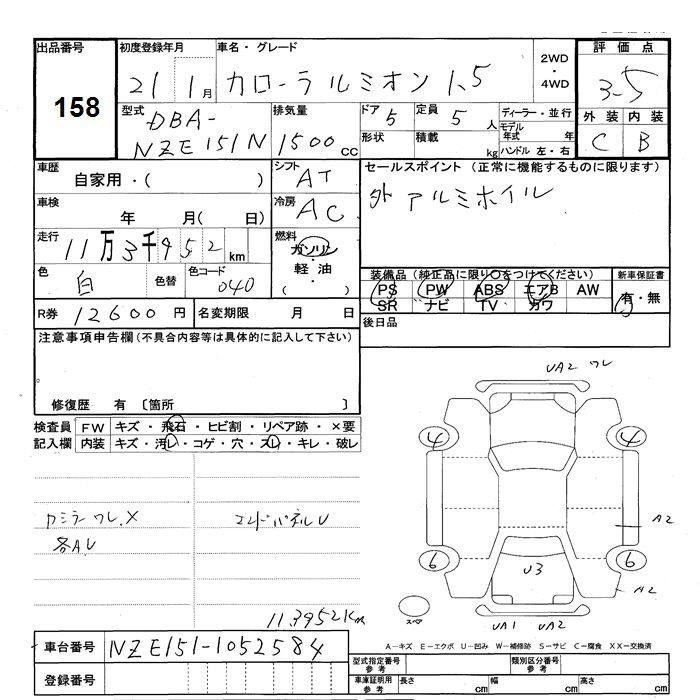 出品番号
158
初度登録年月
21 1月
車名・グレード
カローラルミオン 1.5
2WD
・
4WD
評価点
3-5
外装 内装
C B
型式
DBA-
NZE151N
排気量
1500cc
ドア
5
定員
5人
ディーラー・並行
モデル
年式 年
形状
積載
kg
ハンドル 左・右
車歴
自家用・( )
シフト
AT
セールスポイント (正常に機能するものに限ります)
外 アルミホイル
車検
年 月( 日)
冷房
AC
走行
11万3千952km
燃料
ガソリン
・
軽油
・
( )
色
白
色替
色コード
040
装備品(純正品に限り○をつけてください)
PS PW ABS エアB AW
SR ナビ TV カワ
新車保証書
有・無
R券
12600円
名変期限 月 日
後日品
注意事項申告欄(不具合内容等は具体的に記入して下さい)
修復歴 有 〔箇所 〕
検査員
記入欄
FW キズ・飛石・ヒビ割・リペア跡・×要
内装 キズ・汚レ・コゲ・穴・スレ・キレ・破レ
カミラーワレ.X
各AU
エンドパネルU
113952km
UA2 ワレ
4 4
A2
6 6
U3
A2
スペア
UA1 UA2
車台番号
NZE151-1052584
登録番号
A-キズ E-エクボ U-凹み W-補修跡 S-サビ C-腐食 XX-交換済
型式指定番号
参考
類別区分番号
参考
車庫証明用
参考
長さ cm
幅 cm
高さ cm